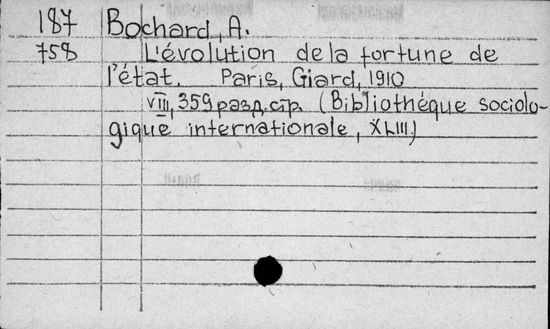 187 Bochard, A.
758 L'évolution de la fortune de
l'état. Paris, Giard, 1910
VIII, 359 разд. стр. (Bibliothéque sociolo-
gique internationale, XLIII)